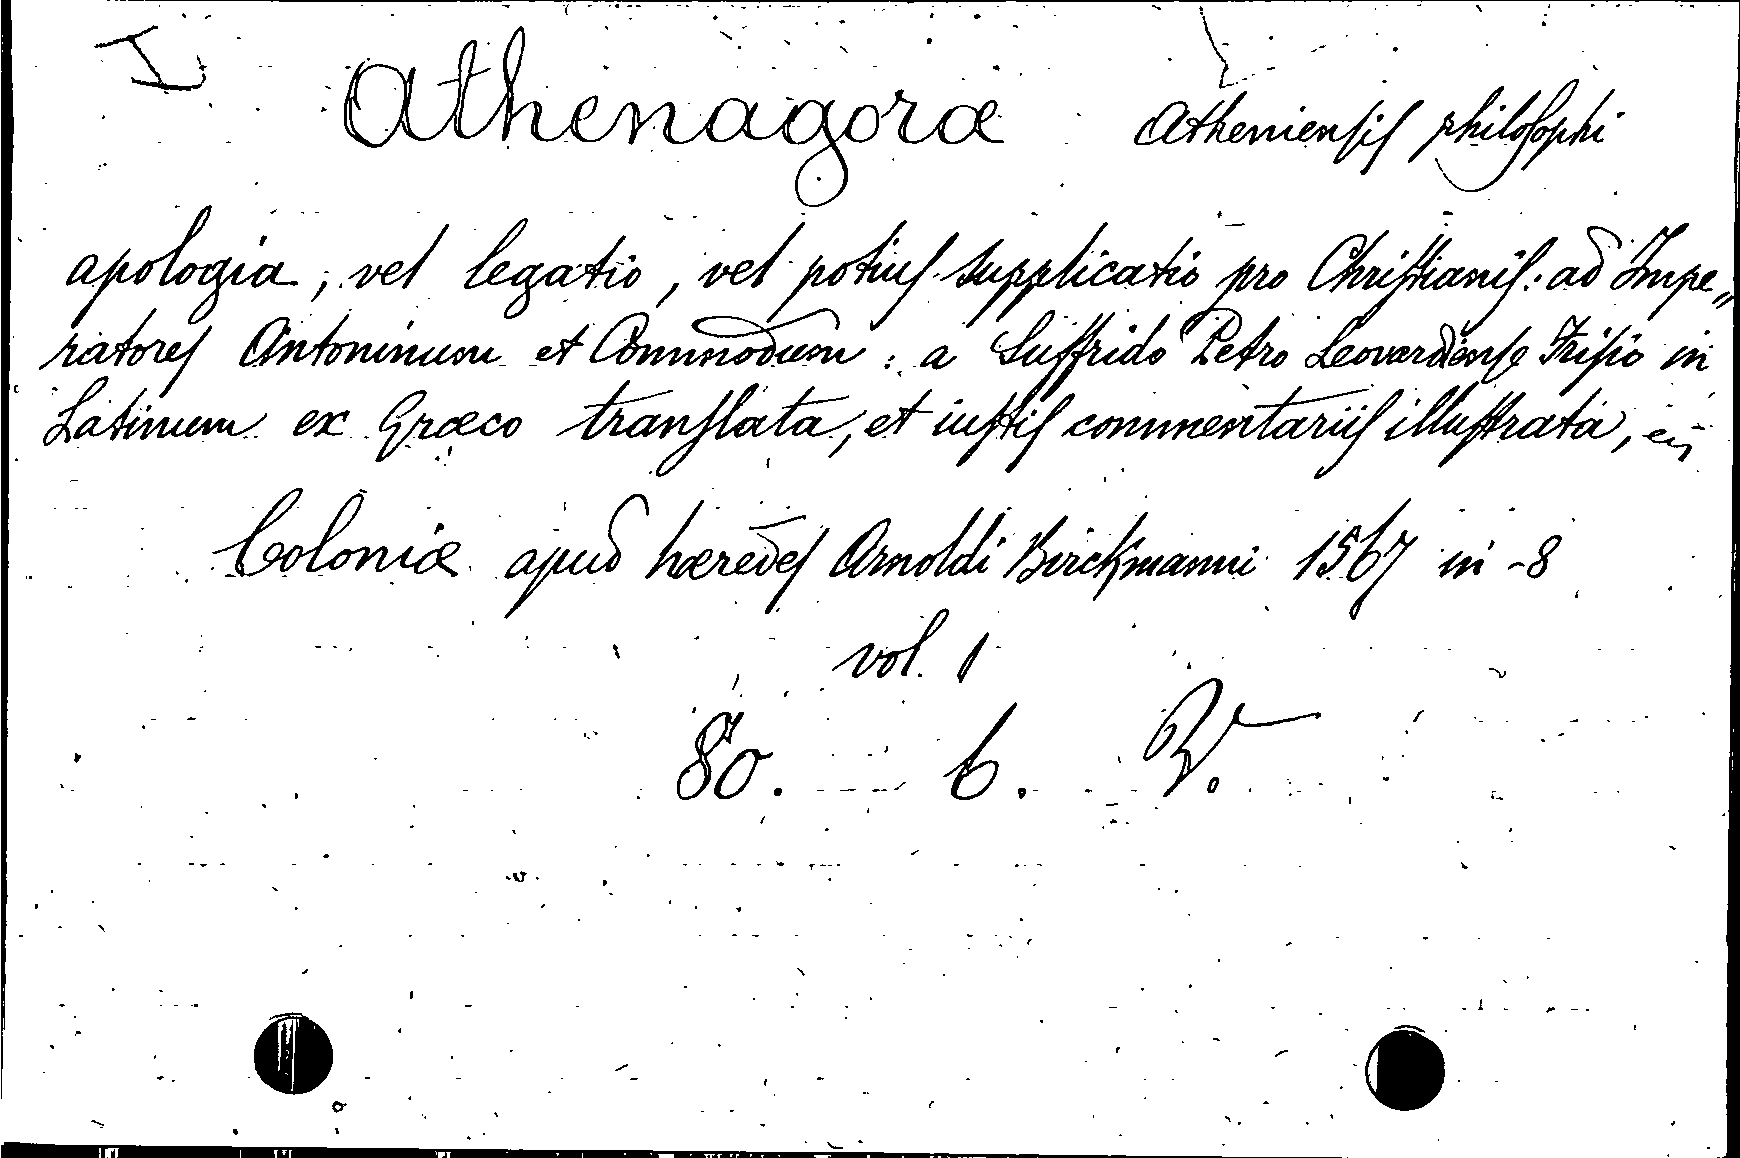 I
Athenagoræ Atheniensis philosophi
apologia, vel legatio, vel potius supplicatio pro Christianis: ad Impe„
ratores Antoninum et Commodum: a Suffrido Petro Leovardiense Frisio in
Latinum ex Græco translata, et iustis commentariis illustrata,
Coloniæ apud hæredes Arnoldi Birckmanni 1567 in-8
vol. 1
80. 6. V.